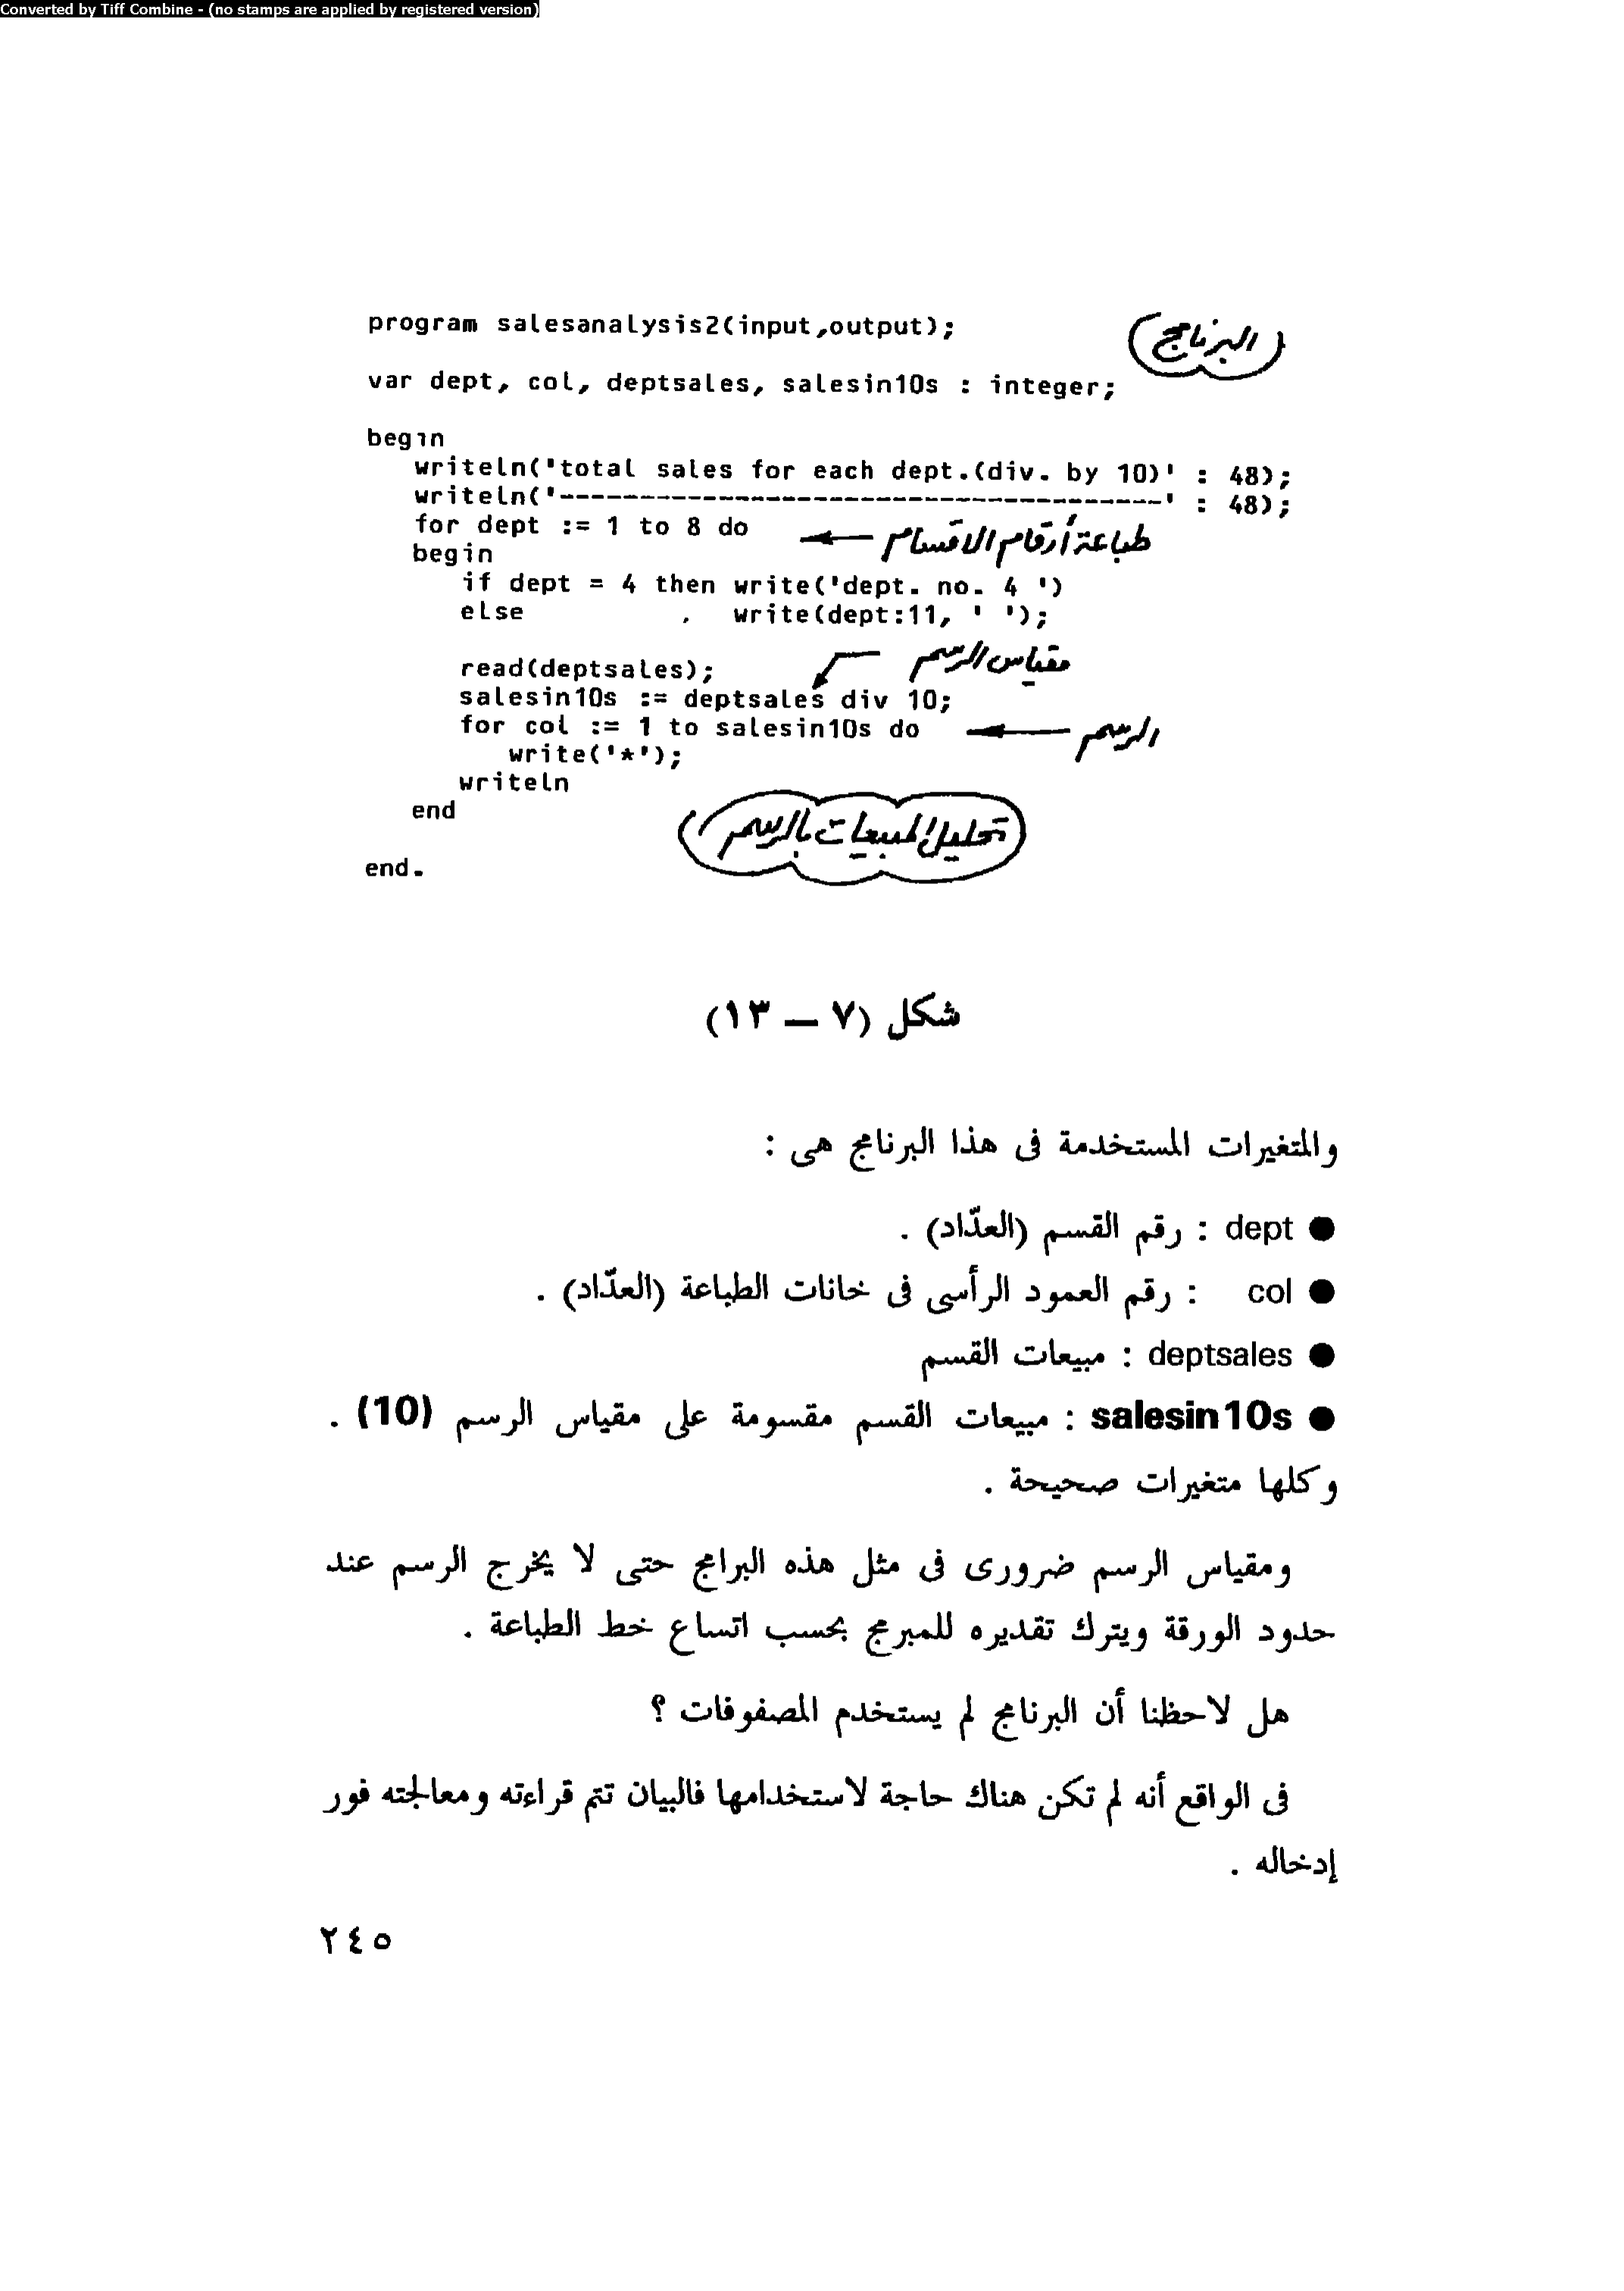 Converted by Tiff Combine - (no stamps are applied by registered version)
program salesanalysis2(input,output);
البرنامج
var dept, col, deptsales, salesin10s : integer;
begin
writeln('total sales for each dept.(div. by 10)' : 48);
writeln('--------------------------------------' : 48);
for dept := 1 to 8 do
طباعة أرقام الاقسام
begin
if dept = 4 then write('dept. no. 4 ')
else write(dept:11, ' ');
مقياس الرسم
read(deptsales);
salesin10s := deptsales div 10;
for col := 1 to salesin10s do
الرسم
write('*');
writeln
end
تحليل المبيعات بالرسم
end.
شكل (٧ — ١٣)
والمتغيرات المستخدمة فى هذا البرنامج هى :
● dept : رقم القسم (العدّاد) .
● col : رقم العمود الرأسى فى خانات الطباعة (العدّاد) .
● deptsales : مبيعات القسم
● salesin10s : مبيعات القسم مقسومة على مقياس الرسم (10) .
وكلها متغيرات صحيحة .
ومقياس الرسم ضرورى فى مثل هذه البرامج حتى لا يخرج الرسم عند
حدود الورقة ويترك تقديره للمبرمج بحسب اتساع خط الطباعة .
هل لاحظنا أن البرنامج لم يستخدم المصفوفات ؟
فى الواقع أنه لم تكن هناك حاجة لاستخدامها فالبيان تتم قراءته ومعالجته فور
إدخاله .
٢٤٥